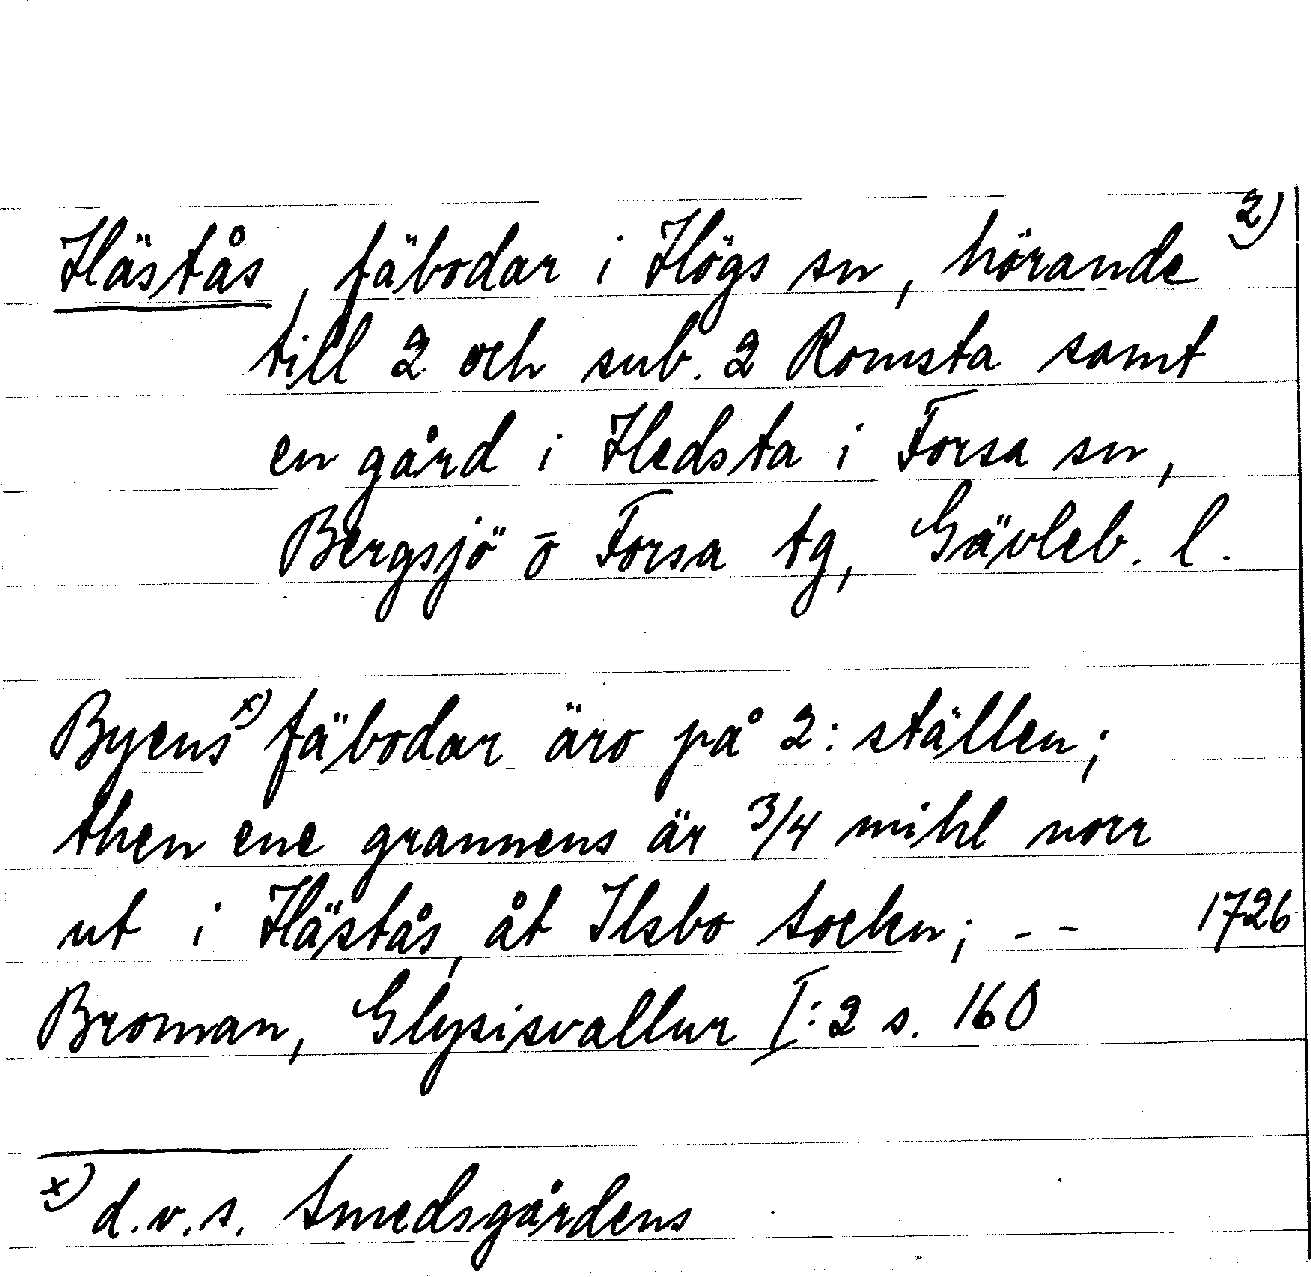 Hästås, fäbodar i Högs sn, hörande 2)
till 2 och sub. 2 Romsta samt
en gård i Hedsta i Forsa sn,
Bergsjö o Forsa tg, Gävleb. l.
Byens x) fäbodar äro på 2: ställen;
then ene grannens är 3/4 mihl norr
ut i Hästås, åt Ilsbo socken; - - 1726
Broman, Glysisvallur I:2 s. 160
x) d.v.s. Smedsgårdens